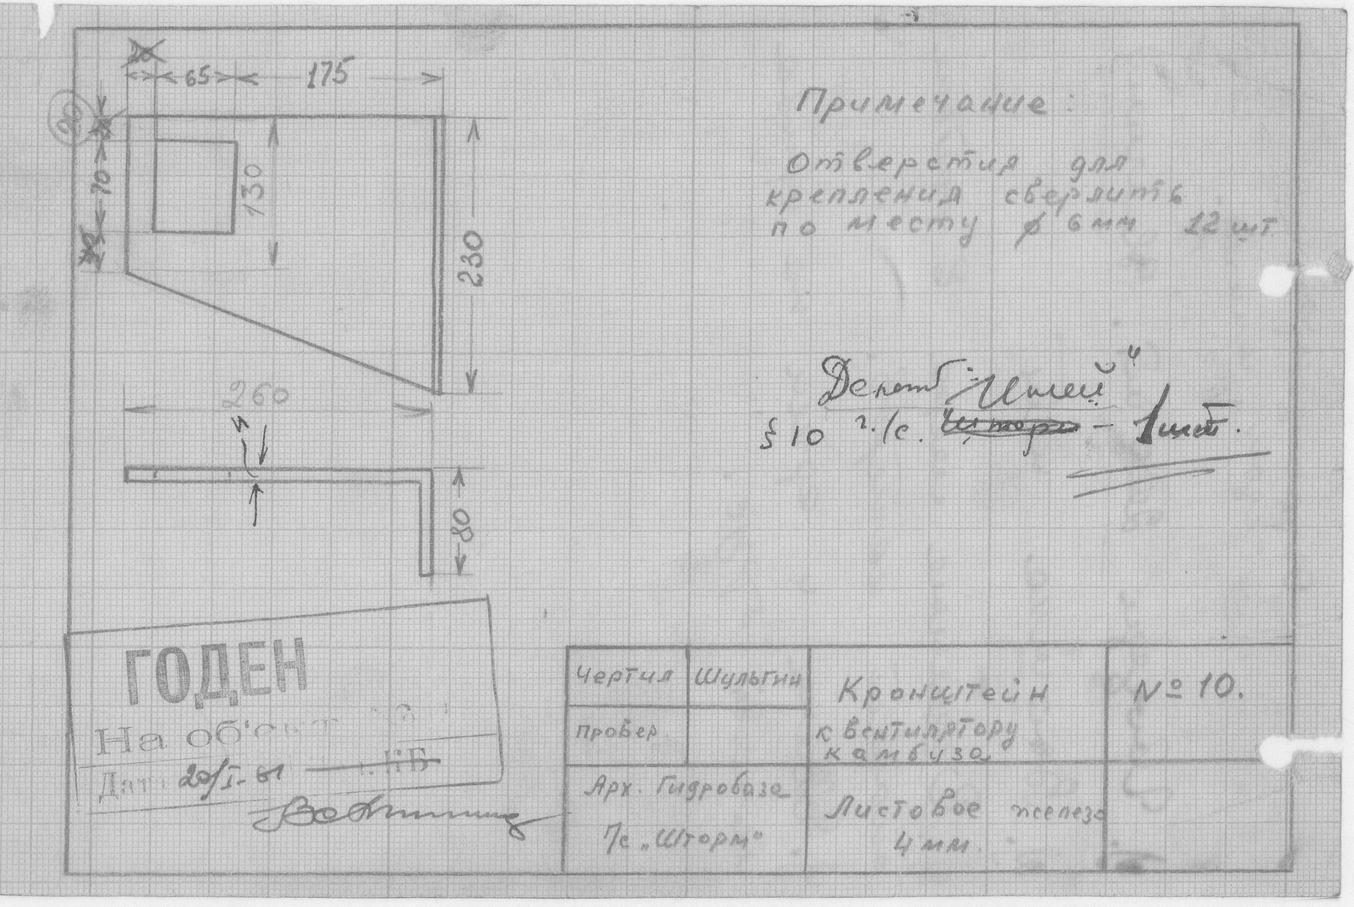 65 175
20
70
130
230
260
4
80
Примечание:
Отверстия для
крепления сверлить
по месту ⌀ 6 мм 12 шт
§ 10 г./с. – 1 шт.
ГОДЕН
На объект
Дата 20/I-61
Чертил Шульгин
провер
Кронштейн
к вентилятору
камбуза
№ 10.
Арх. Гидробаза
Г/с „Шторм"
Листовое железо
4 мм.